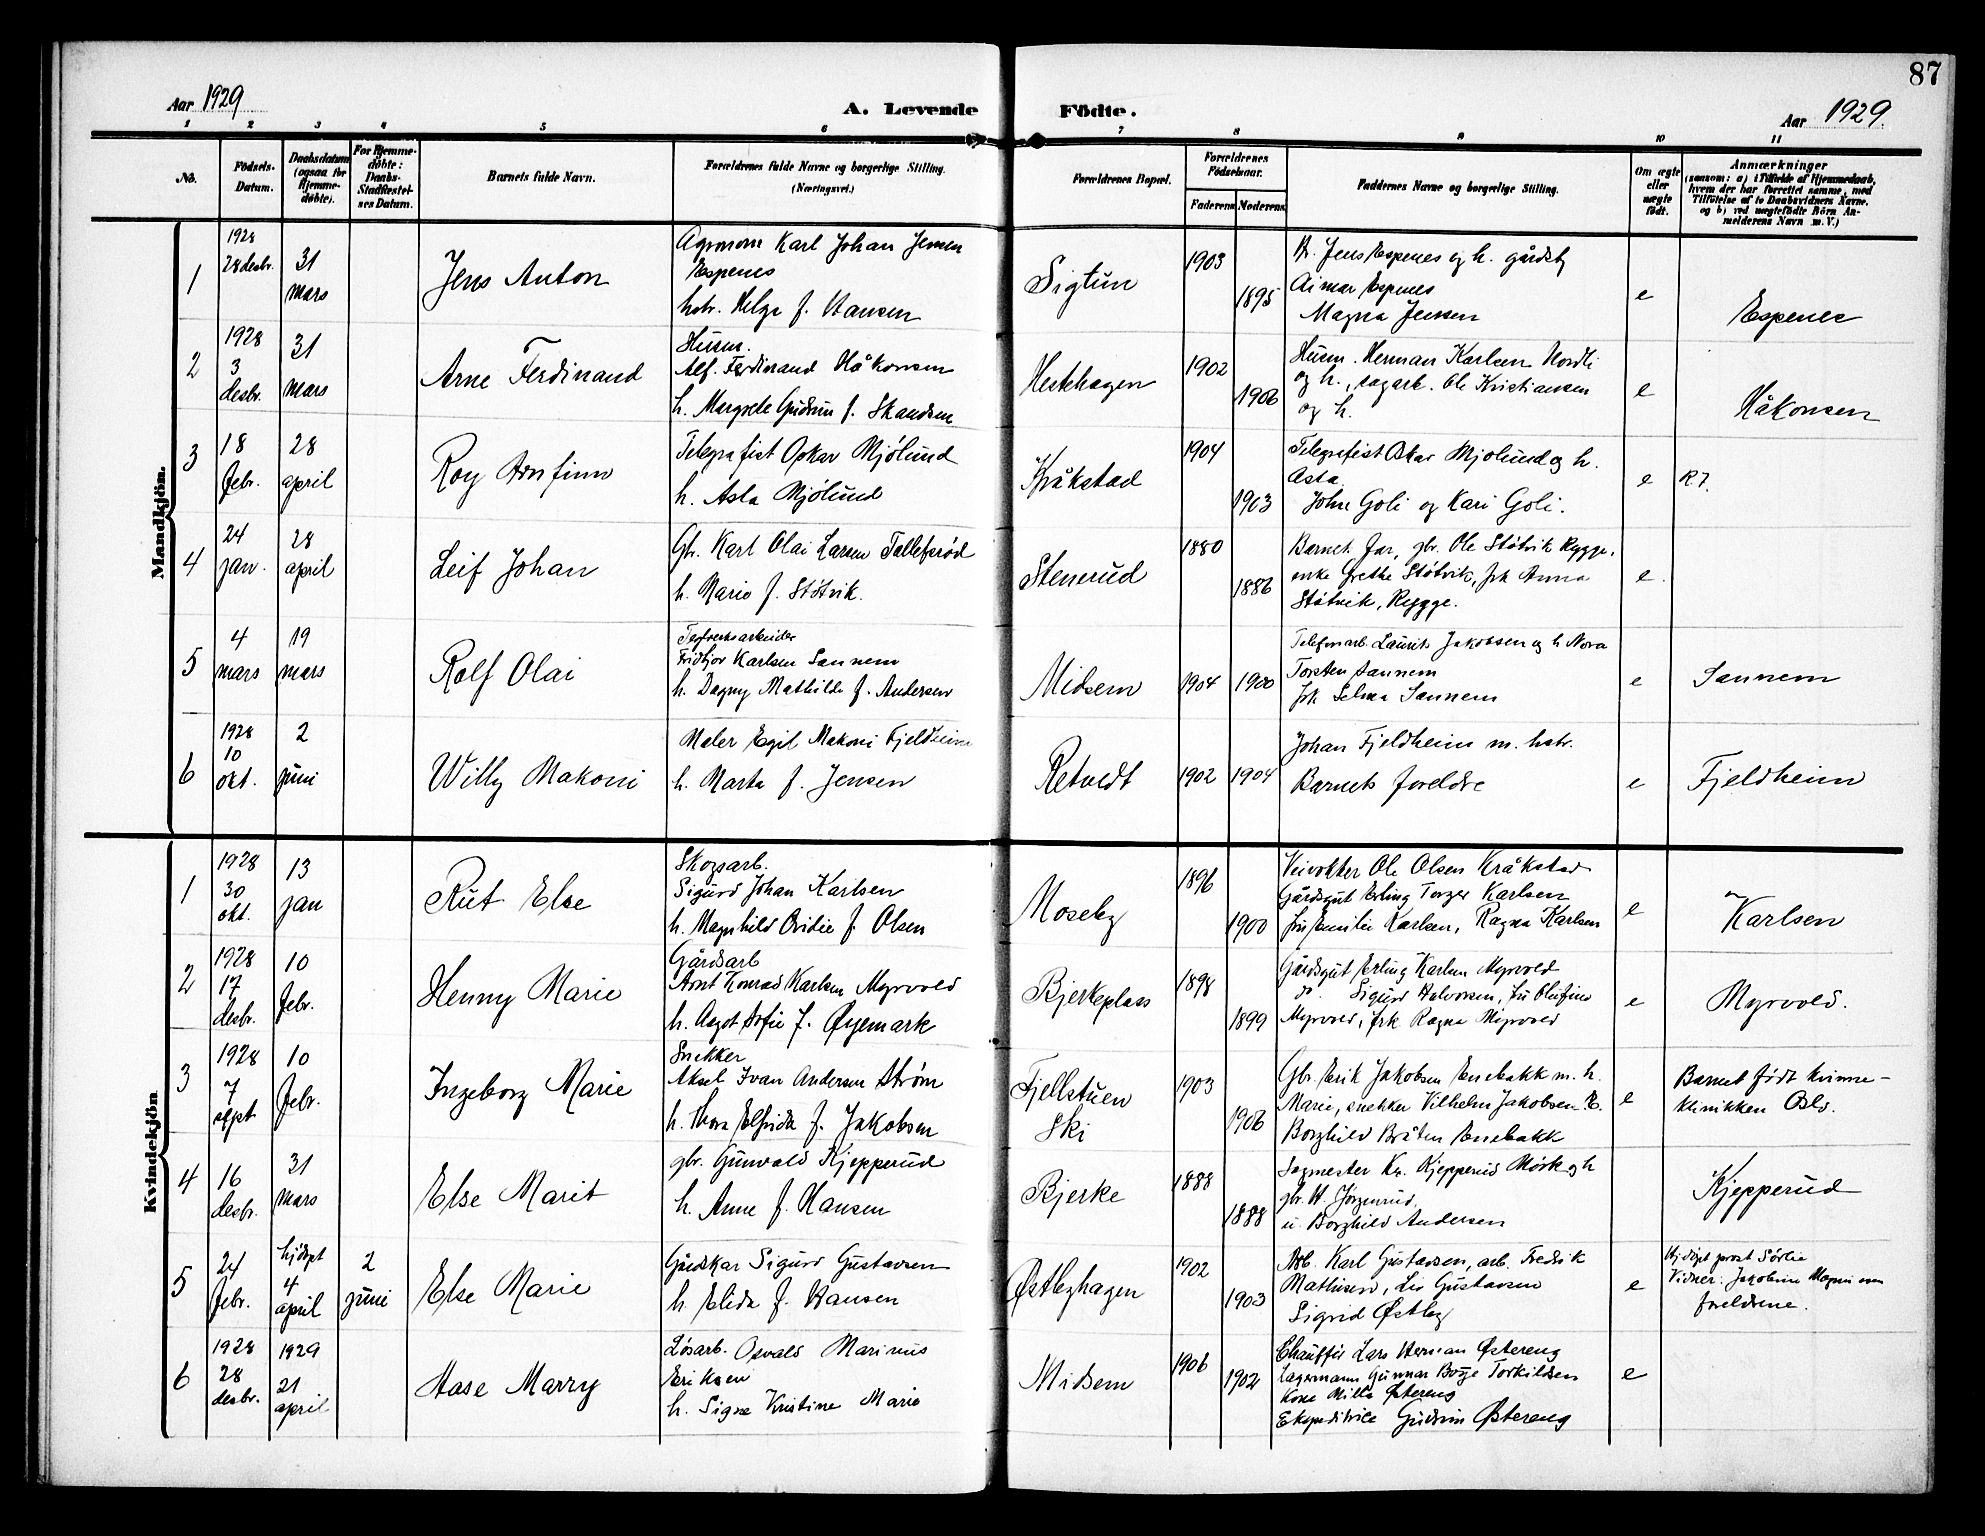 87
Aar 1929
A. Levende Födte.
Aar 1929.
1 2 3 4 5 6 7 8 9 10 11
No.
Födsels-
Datum.
Daabsdatum
(ogsaa for
Hjemme-
døbte).
For Hjemme-
døbte:
Daabs-
Stadfæstel-
ses Datum.
Barnets fulde Navn.
Forældrenes fulde Navne og borgerlige Stilling.
(Næringsvei.)
Forældrenes Bopæl.
Forældrenes
Födselsaar.
Faderens Moderens
Faddernes Navne og borgerlige Stilling.
Om ægte
eller
uægte
født.
Anmærkninger
(saasom: a) i Tilfælde af Hjemmedaab,
hvem der har forrettet samme, med
Tilföielse af to Daabsvidners Navne,
og b) ved uægtefödte Börn An-
melderens Navn m. V.)
Mandkjön.
1
1928
28 desbr.
31
mars
Jens Anton
Agronom Karl Johan Jensen
Espenes
hstr. Helga f. Hansen
Sigtun
1903
1895
Jens Espenes og h. gårdsb
Aimar Espenes
Magna Jensen
e
Espenes
2
1928
3
desbr.
31
mars
Arne Ferdinand
Husm.
Alf. Ferdinand Håkonsen
h. Margrete Gudrun f. Skandsen
Hestehagen
1902
1906
Husm. Herman Karlsen Nordli
og h., sagarb. Ole Kristiansen
og h.
e
Håkonsen
3
18
febr.
28
april
Roy Arnfinn
Telegrafist Oskar Mjølund
h. Asta Mjølund
Kråkstad
1904
1903
Telegrafist Oskar Mjølund og h.
Asta.
John Goli og Kari Goli.
e
R7.
4
24
jan.
28
april
Leif Johan
Gbr. Karl Olai Larsen Tollefsrød
h. Marie f. Støtvik.
Stenerud
1880
1886
Barnets far, gbr. Ole Støtvik Rygge,
enke Grethe Støtvik, frk Anna
Støtvik, Rygge.
e.
5
4
mars
19
mars
Rolf Olai
Fridtjov Karlsen Sannem
h. Dagny Mathilde f. Andersen
Midsem
1904
1900
Telefonarb. Laurits Jakobsen og h Nora
Torsten Sannem
frk Selma Sannem
e
Sannem
6
1928
10
okt.
2
juni
Willy Makoni
Maler Egil Makoni Fjeldheim
h. Marta f. Jensen
Retvedt
1902
1904
Johan Fjeldheim m. hstr.
Barnets foreldre
e
Fjeldheim
Kvindekjön
1
1928
30
okt.
13
jan
Rut Else
Skogsarb.
Sigurd Johan Karlsen
h. Magnhild Ovidie f. Olsen
Moseby
1896
1900
Veivokter Ole Olsen Kråkstad
Gårdsgut Erling Torger Karlsen
fru Emilie Karlsen, Ragna Karlsen
e
Karlsen
2
1928
17
desbr.
10
febr.
Henny Marie
Gårdsarb
Arnt Konrad Karlsen Myrvold
h. Aagot Sofie f. Øyemark
Bjerkeplass
1898
1899
Gårdsgut Erling Karlsen Myrvold
do. Sigurd Halvorsen, fru Olufine
Myrvold, frk Ragna Myrvold
e
Myrvold.
3
1928
7
sept.
10
febr.
Ingeborg Marie
Snekker
Aksel Ivan Andersen Strøm
h. Thora Elfrida f. Jakobsen
Fjellstuen
Ski
1903
1906
Gbr. Erik Jakobsen Enebakk m. h.
Marie, snekker Vilhelm Jakobsen. E.
Borghild Bråten Enebakk
e
Barnet født kvinne-
klinikken Oslo.
4
16
desbr.
31
mars
Else Marit
gbr. Gunvald Kjepperud
h. Anne f. Hansen
Bjerke
1888
1888
Sagmester Kr. Kjepperud Mørk og h
gbr. H. Jörgenrud,
u. Borghild Andersen
e
Kjepperud
5
24
febr.
hjdøpt
4
april
2
juni
Else Marie
Gårdskar Sigurd Gustavsen
h. Elida f. Hansen
Østbyhagen
1902
1903
Arb. Karl Gustavsen, arb. Fredrik
Mathisen, Liv Gustavsen
Sigrid Østby
e
Hjdøpt prost Sörlie
Vidner: Jakobine Magnussen
foreldrene.
6
1928
28
desbr.
1929
21
april
Aase Marry
Løsarb. Osvald Marinus
Eriksen
h. Signe Kristine Marie
Midsem
1906
1902
Chauffør Lars Herman Østereng
Lagermann Gunnar Borge Torkildsen
Kone Milla Østereng
Ekspeditrice Gudrun Østereng
e